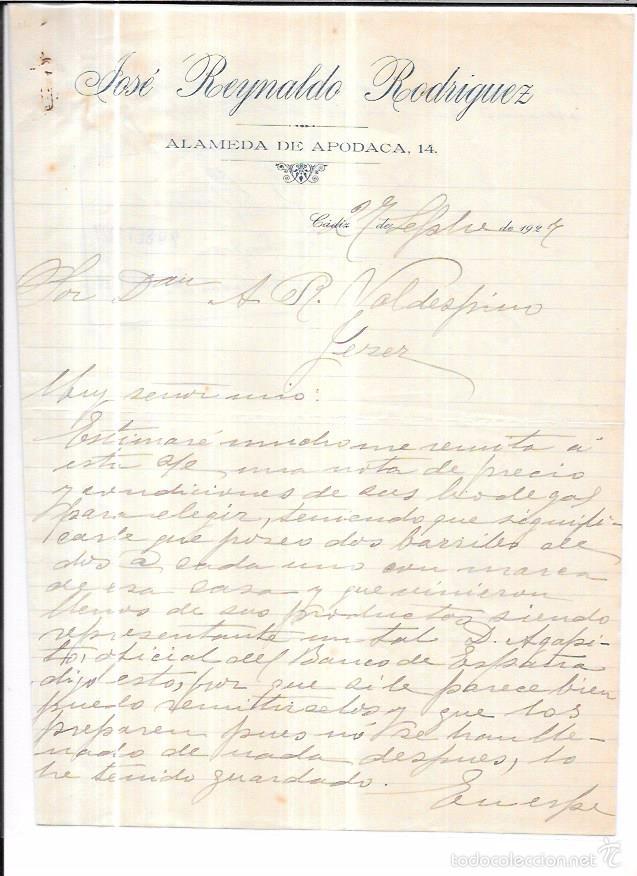 José Reynaldo Rodriguez
ALAMEDA DE APODACA, 14.
Cádiz 27 de Sepbre de 1927
Sor Don A. R. Valdespino
Jerez
Muy señor mio:
Estimaré mucho me remita á
esta una nota de precio
y condiciones de sus bodegas
para elegir, teniendo que signifi-
carle que poseo dos barriles de
dos @ cada uno con marca
de esa casa y que vinieron
llenos de sus productos siendo
representante un tal D. Agapi-
to, oficial del Banco de España
digo esto, por que si le parece bien
puedo remitirselos y que los
preparen pues nó se han lle-
nado de nada despues, lo
he tenido guardado.
En espe
todocoleccion.net